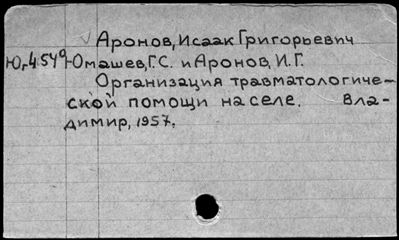 Аронов, Исаак Григорьевич
Ю,4.54⁹ Юмашев, Г.С. и Аронов, И.Г.
Организация травматологиче-
ской помощи на селе. Вла-
димир, 1957.